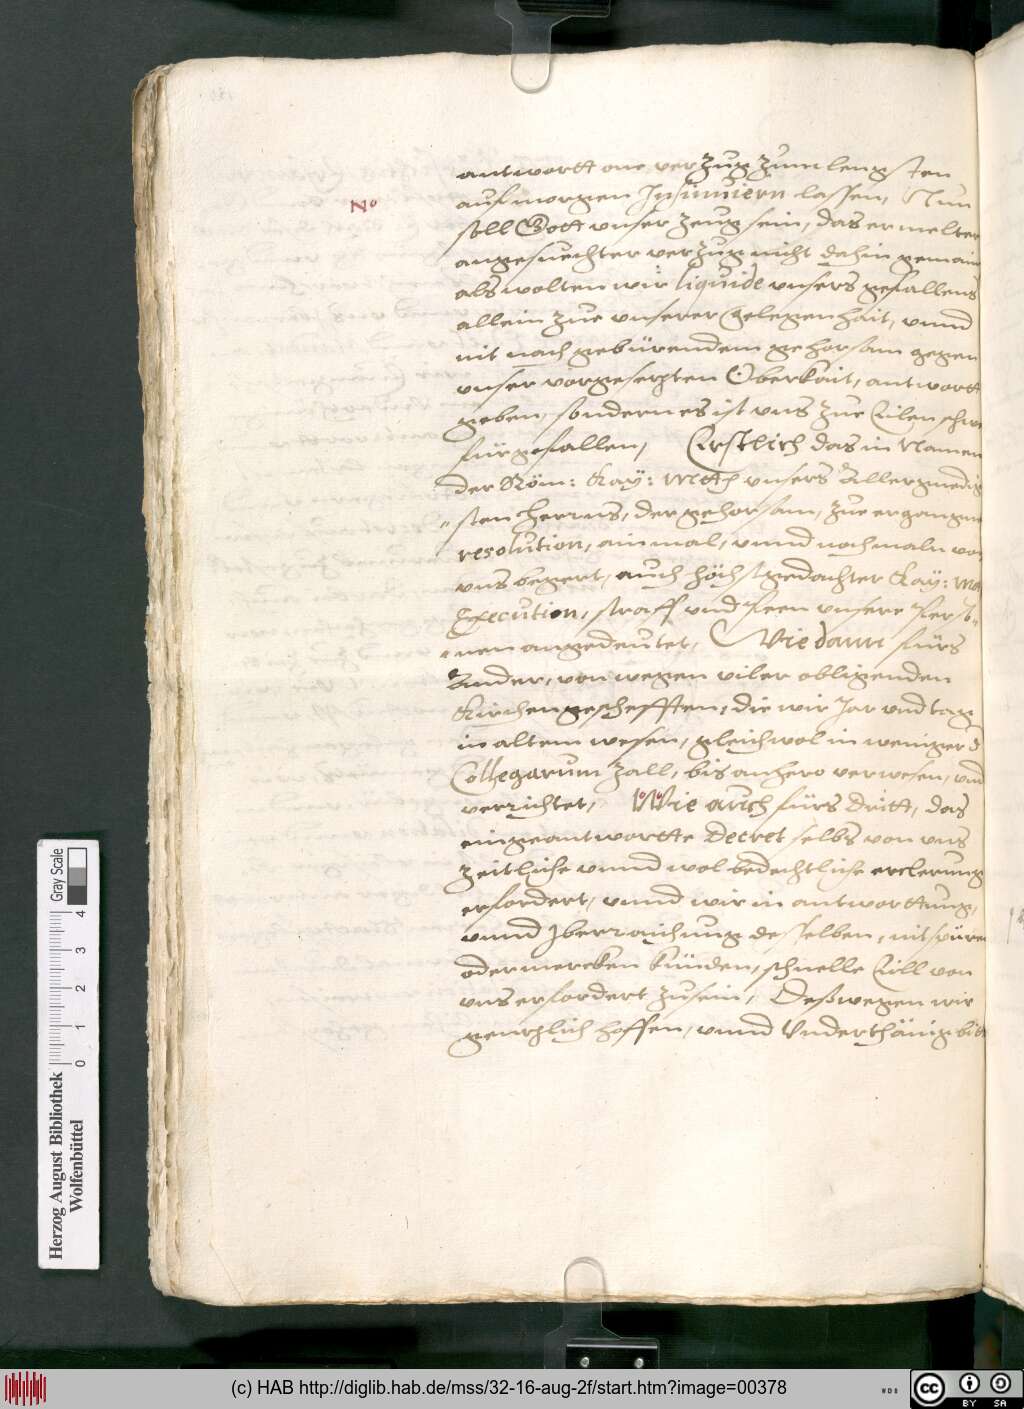 antwortt one verzug zum lengsten
No
auf morgen Insinuiern lassen, Nun
soll Gott unser zeug sein, das ermelter
angesuechter verzug nicht dahin gemain
als wolten wir liquide unsers gefallens
allein zue unserer gelegenhait, unnd
nit nach gebürendem gehorsam gegen
unser vorgesetzten Oberkait, antwortt
geben, sondern es ist uns zue Eilen schwer
fürgefallen, Erstlich das in Namen
der Röm: Kay: Mtt unsers Allergnedig
"sten Herrns, der gehorsam, zue ergangner
resolution, ainmal, unnd nochmaln von
uns begert, auch höchstgedachter Kay: Mtt
Execution, straff und Peen unsere Perso-
"nen angedeutet, Wie dann fürs
Ander, von wegen viler obligenden
Kirchengeschefften, die wir Jar und tag
in altem wesen, gleichwol in weniger
Collegarum zall, bis anhero verwesen, und
verrichtet, Wie auch fürs dritt, das
eingeantwortte Decret selbs von uns
zeitliche unnd wolbedechtliche erclerung
erfordert, unnd wir in antworttung,
unnd Iberraichung desselben, nit spüren
oder mercken künden, schnelle Eill von
uns erfordert zusein, Deßwegen wir
gentzlich hoffen, unnd Underthänig bitt
Herzog August Bibliothek
Wolfenbüttel
Gray Scale
0 1 2 3 4
(c) HAB http://diglib.hab.de/mss/32-16-aug-2f/start.htm?image=00378
WDB
cc BY SA